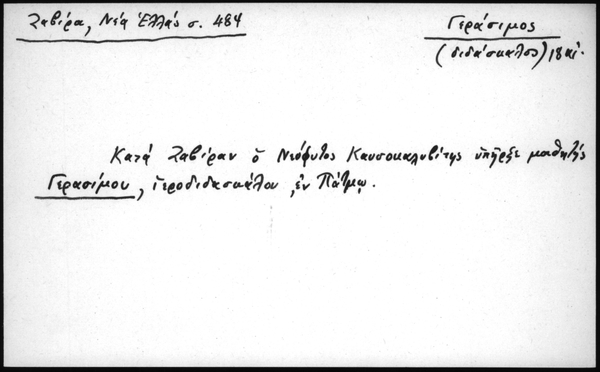 Ζαβίρα, Νέα Ἑλλάς σ. 484
Γεράσιμος
(διδάσκαλος) 18 αἰ.
Κατά Ζαβίραν ὁ Νεόφυτος Καυσοκαλυβίτης ὑπῆρξε μαθητής
Γερασίμου, ἱεροδιδασκάλου ἐν Πάτμῳ.